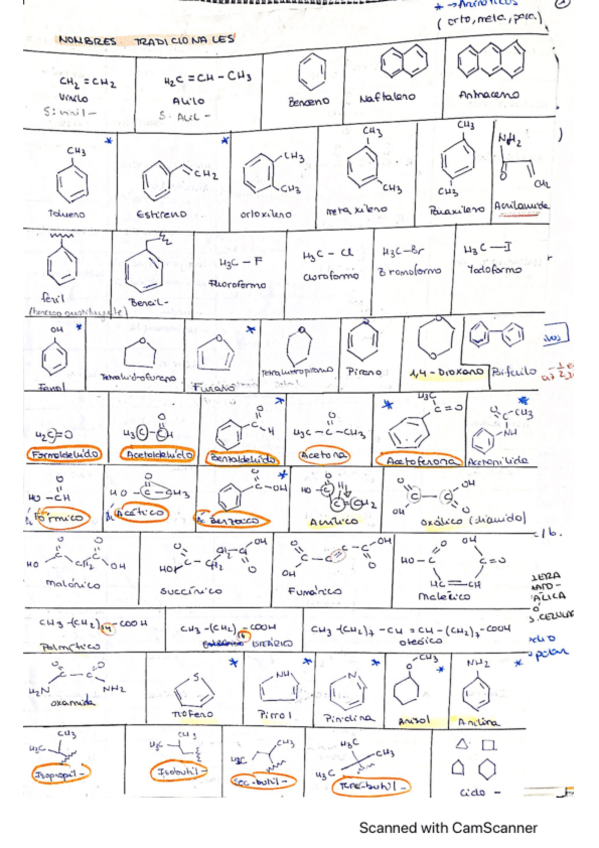 * → Aromáticos
(orto, meta, para)
NOMBRES TRADICIONALES
CH₂ = CH₂
Vinilo
H₂C = CH – CH₃
Alilo
Benceno
Naftaleno
Antraceno
CH₃
Tolueno
*
CH₂
Estireno
*
CH₃
CH₃
ortoxileno
CH₃
CH₃
meta xileno
CH₃
CH₃
Paraxileno
NH₂
O
CH₂
Acrilamida
fenil
Bencil-
H₃C – F
Fluoroformo
H₃C – Cl
Cloroformo
H₃C – Br
Bromoformo
H₃C – I
Yodoformo
OH
*
Fenol
O
Tetrahidrofurano
O
*
Furano
O
Tetrahidropirano
O
Pirano
O
O
1,4-Dioxano
Bifenilo
H₂C=O
Formaldehído
O
H₃C–C–H
Acetaldehído
O
C–H
*
Benzaldehído
O
H₃C–C–CH₃
Acetona
H₃C
C=O
*
Acetofenona
O
C–CH₃
NH
*
Acetanilida
O
HO–CH
Fórmico
O
HO–C–CH₃
Acético
O
C–OH
*
Benzoico
O
HO–C
H
C=CH₂
Acrílico
O
OH
C–C
OH
O
oxálico (diácido)
O
O
HO
C
CH₂
C
OH
Malónico
O
HO
C
CH₂–CH₂
C
O
OH
Succínico
O
C
OH
C
O
OH
Fumárico
O
OH
HO–C
C=O
HC=CH
Maleico
CH₃–(CH₂)₁₄–COOH
Palmítico
CH₃–(CH₂)₁₆–COOH
CH₃–(CH₂)₇–CH=CH–(CH₂)₇–COOH
oleico
O
O
C–C
H₂N
NH₂
oxamida
S
*
Tiofeno
NH
*
Pirrol
N
*
Piridina
O–CH₃
*
Anisol
NH₂
*
Anilina
CH₃
H₃C
Isopropil-
CH₃
H₃C
Isobutil-
CH₃
H₃C
Sec-butil-
H₃C
CH₃
H₃C
Terc-butil-
Ciclo-
Scanned with CamScanner